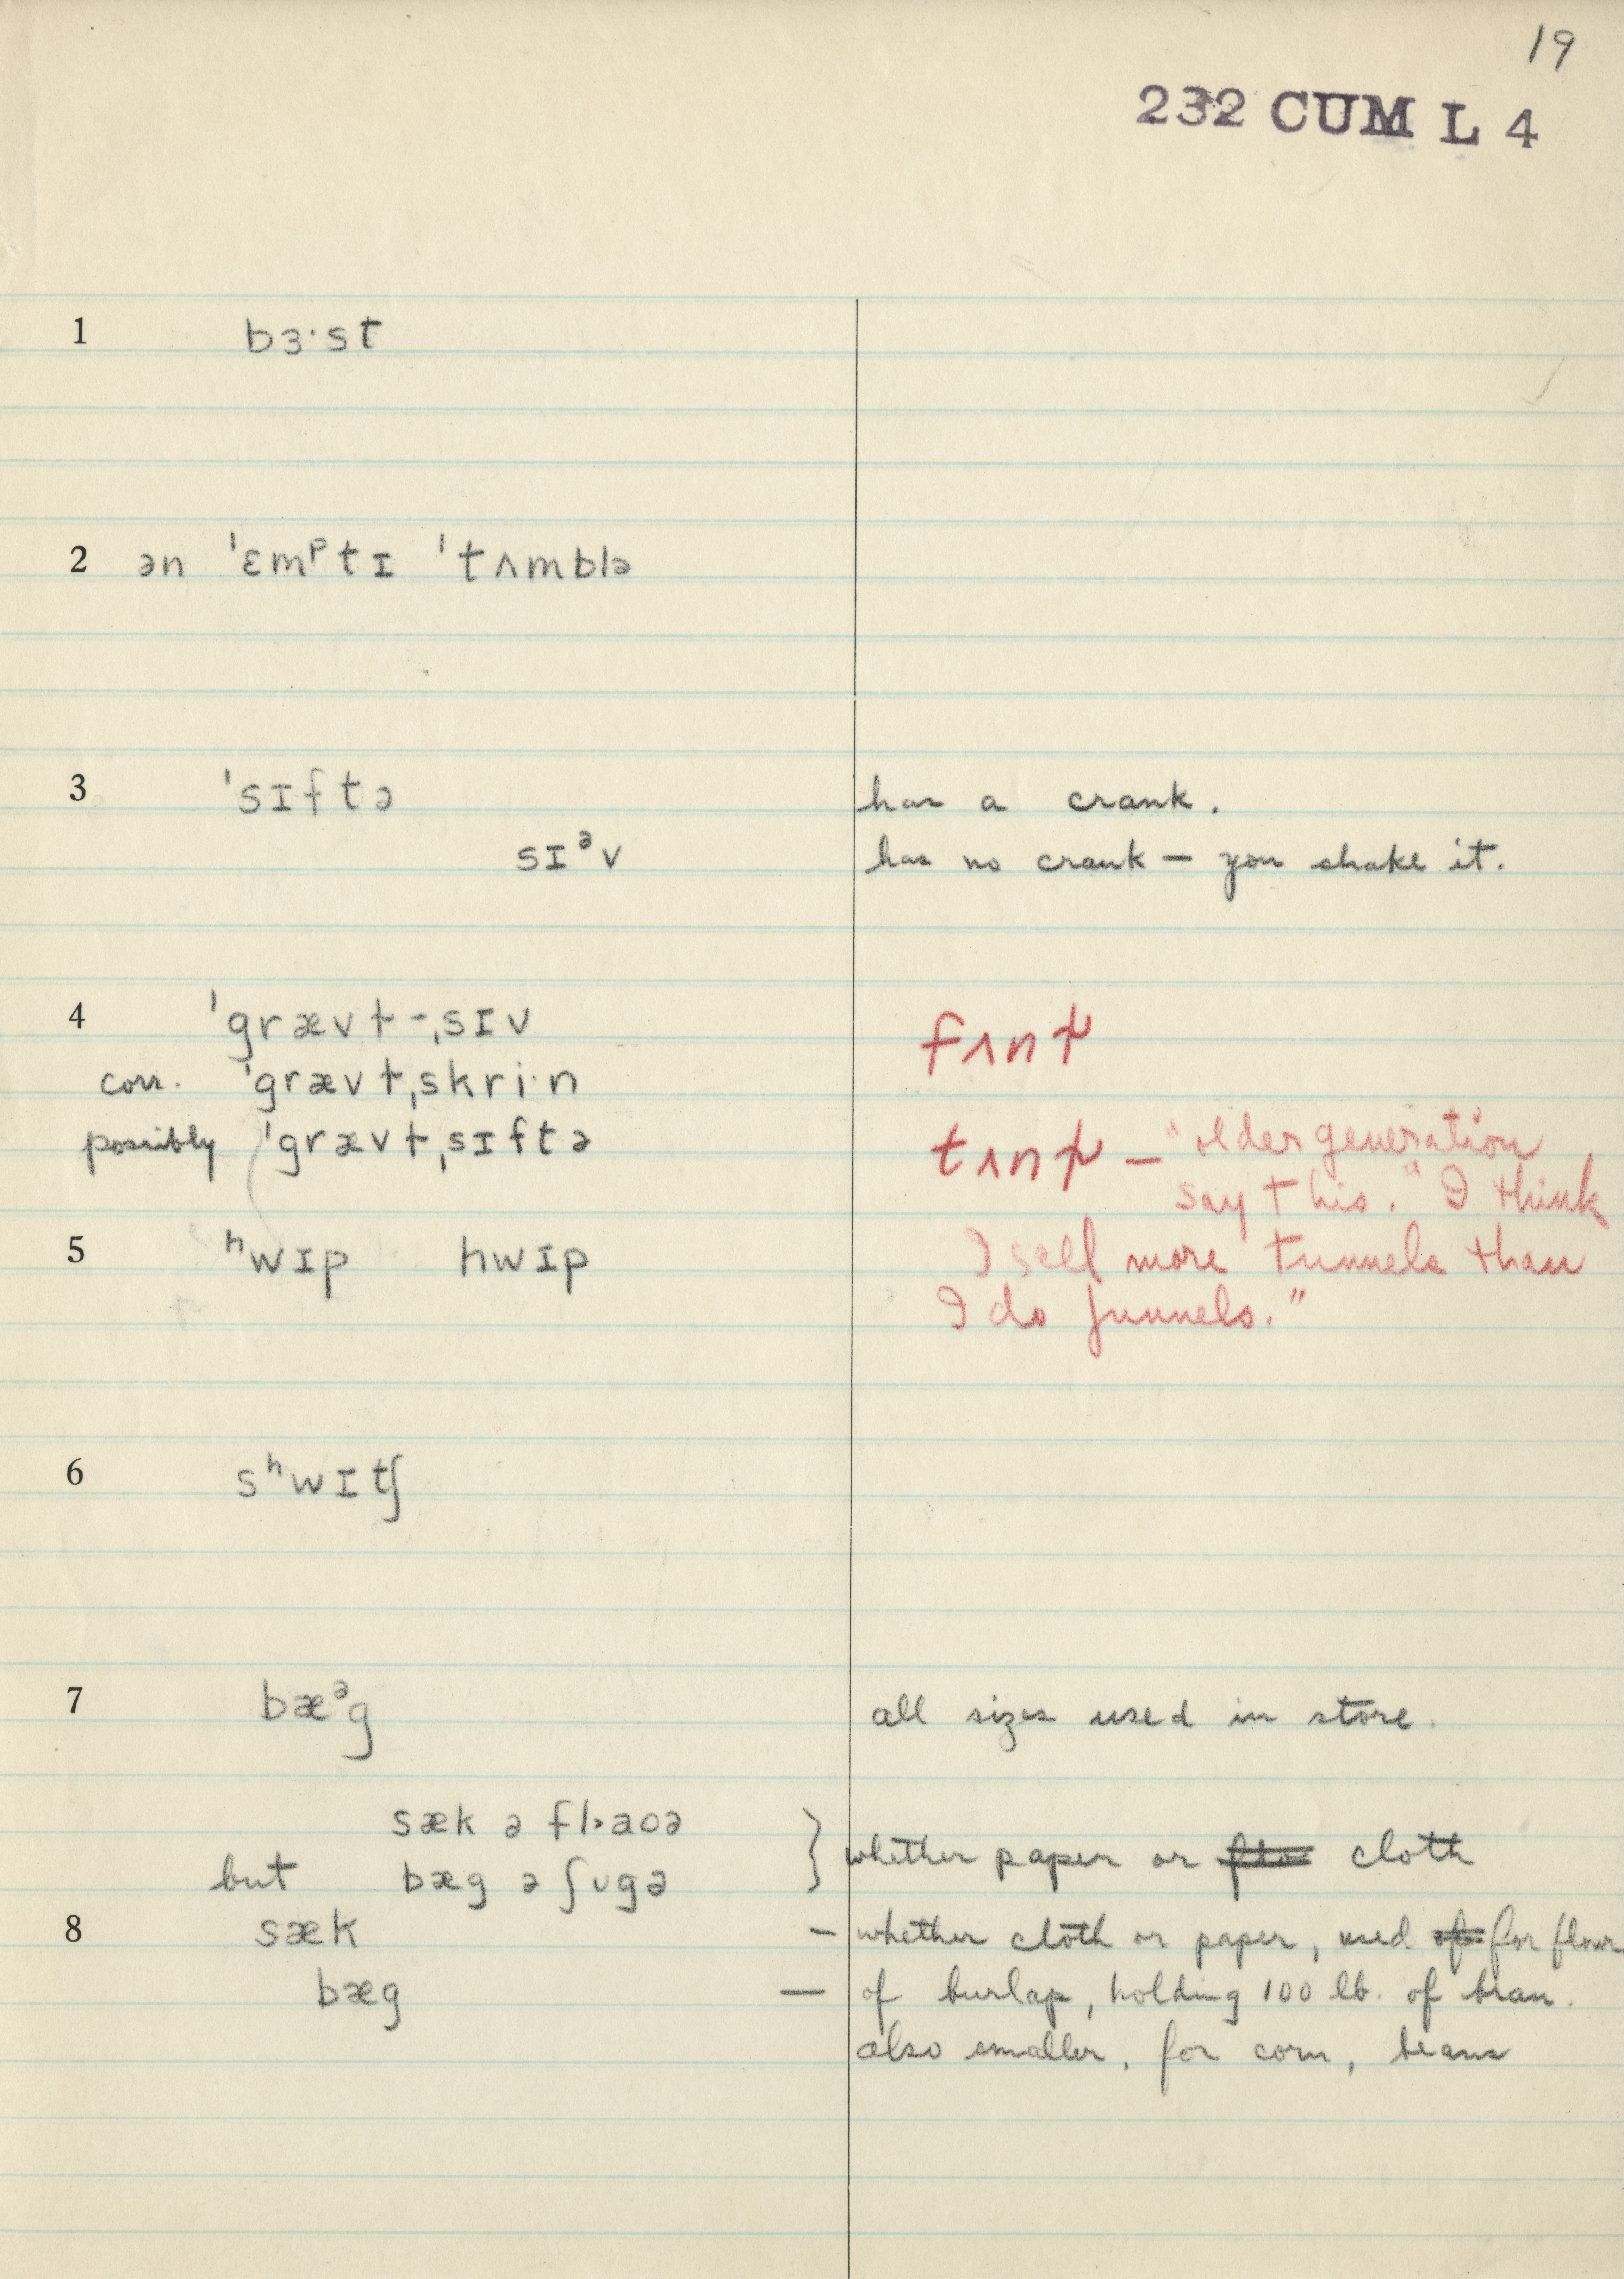 19
232 CUM L 4
1 bɜ·st
2 ən ˈɛmᵖtɪ ˈtʌmblə
3 ˈsɪftə has a crank.
sɪᵊv has no crank — you shake it.
4 ˈgrævɫ-ˌsɪv fʌnɫ
corr. ˈgrævɫˌskri·n
possibly ˈgrævɫˌsɪftə tʌnɫ — "older generation
say this." I think
5 ʰwɪp hwɪp I sell more tunnels than
I do funnels."
6 sʰwɪtʃ
7 bæᵊg all sizes used in store.
sæk ə fl˃aoə } whether paper or ~~flo~~ cloth
but bæg ə ʃʊgə
8 sæk — whether cloth or paper, used ~~of~~ for flour
bæg — of burlap, holding 100 lb. of bran.
also smaller, for corn, beans